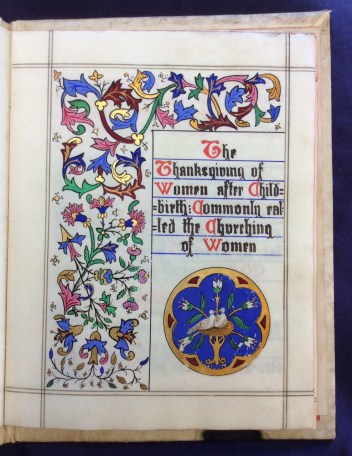 The
Thanksgiving of
Women after Child=
=birth: Commonly cal=
=led the Churching
of Women